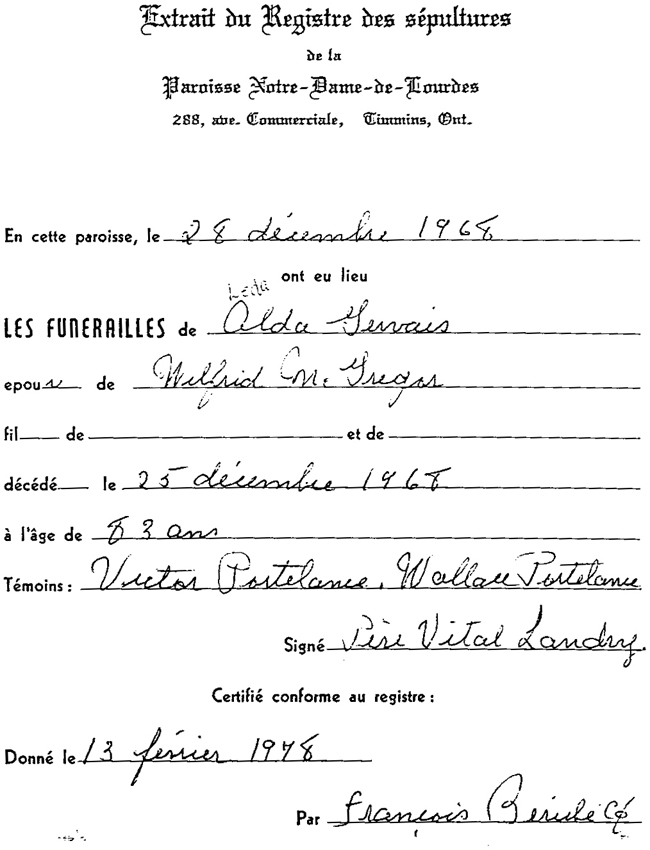 Extrait du Registre des sépultures
de la
Paroisse Notre-Dame-de-Lourdes
288, ave. Commerciale, Timmins, Ont.
En cette paroisse, le 28 décembre 1968
ont eu lieu
Leda
LES FUNERAILLES de Alda Gervais
epouse de Wilfrid Mc Gregor
fil de et de
décédé le 25 décembre 1968
à l'âge de 83 ans
Témoins : Victor Portelance, Wallace Portelance
Signé Père Vital Landry.
Certifié conforme au registre :
Donné le 13 février 1978
Par François